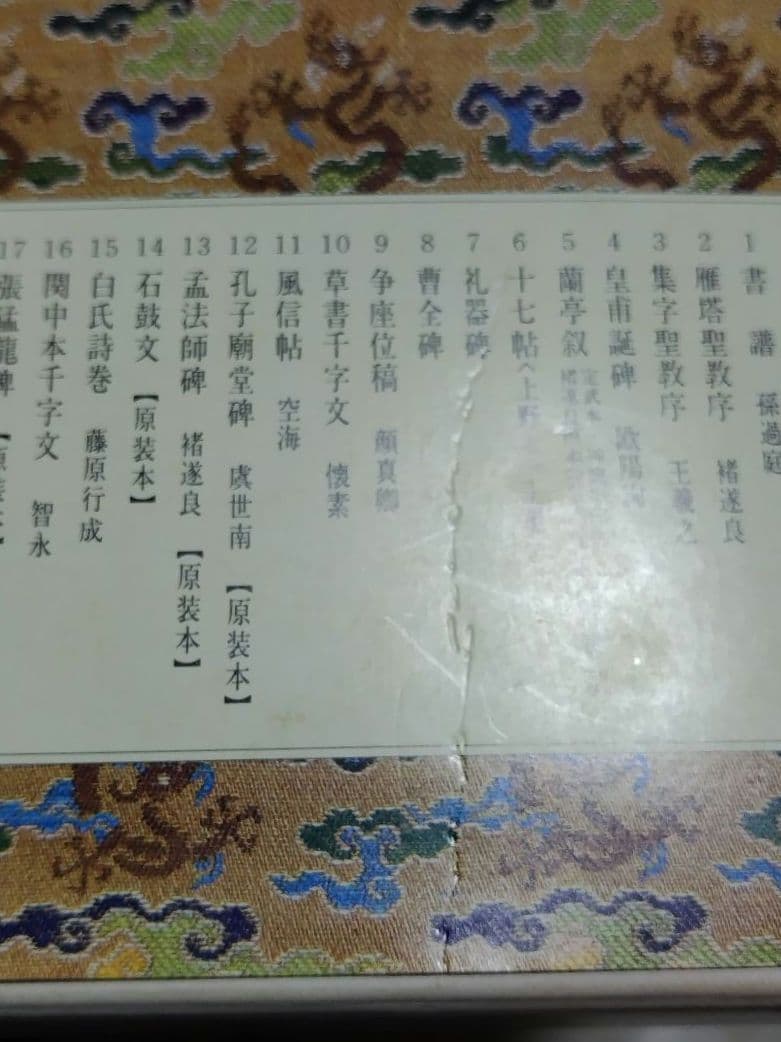 1 書譜 孫過庭
2 雁塔聖教序 褚遂良
3 集字聖教序 王羲之
4 皇甫誕碑 欧陽詢
5 蘭亭叙 定武本
6 十七帖〈上野
7 礼器碑
8 曹全碑
9 争座位稿 顔真卿
10 草書千字文 懐素
11 風信帖 空海
12 孔子廟堂碑 虞世南 【原装本】
13 孟法師碑 褚遂良 【原装本】
14 石鼓文 【原装本】
15 白氏詩巻 藤原行成
16 関中本千字文 智永
17 張猛龍碑 【原装本】